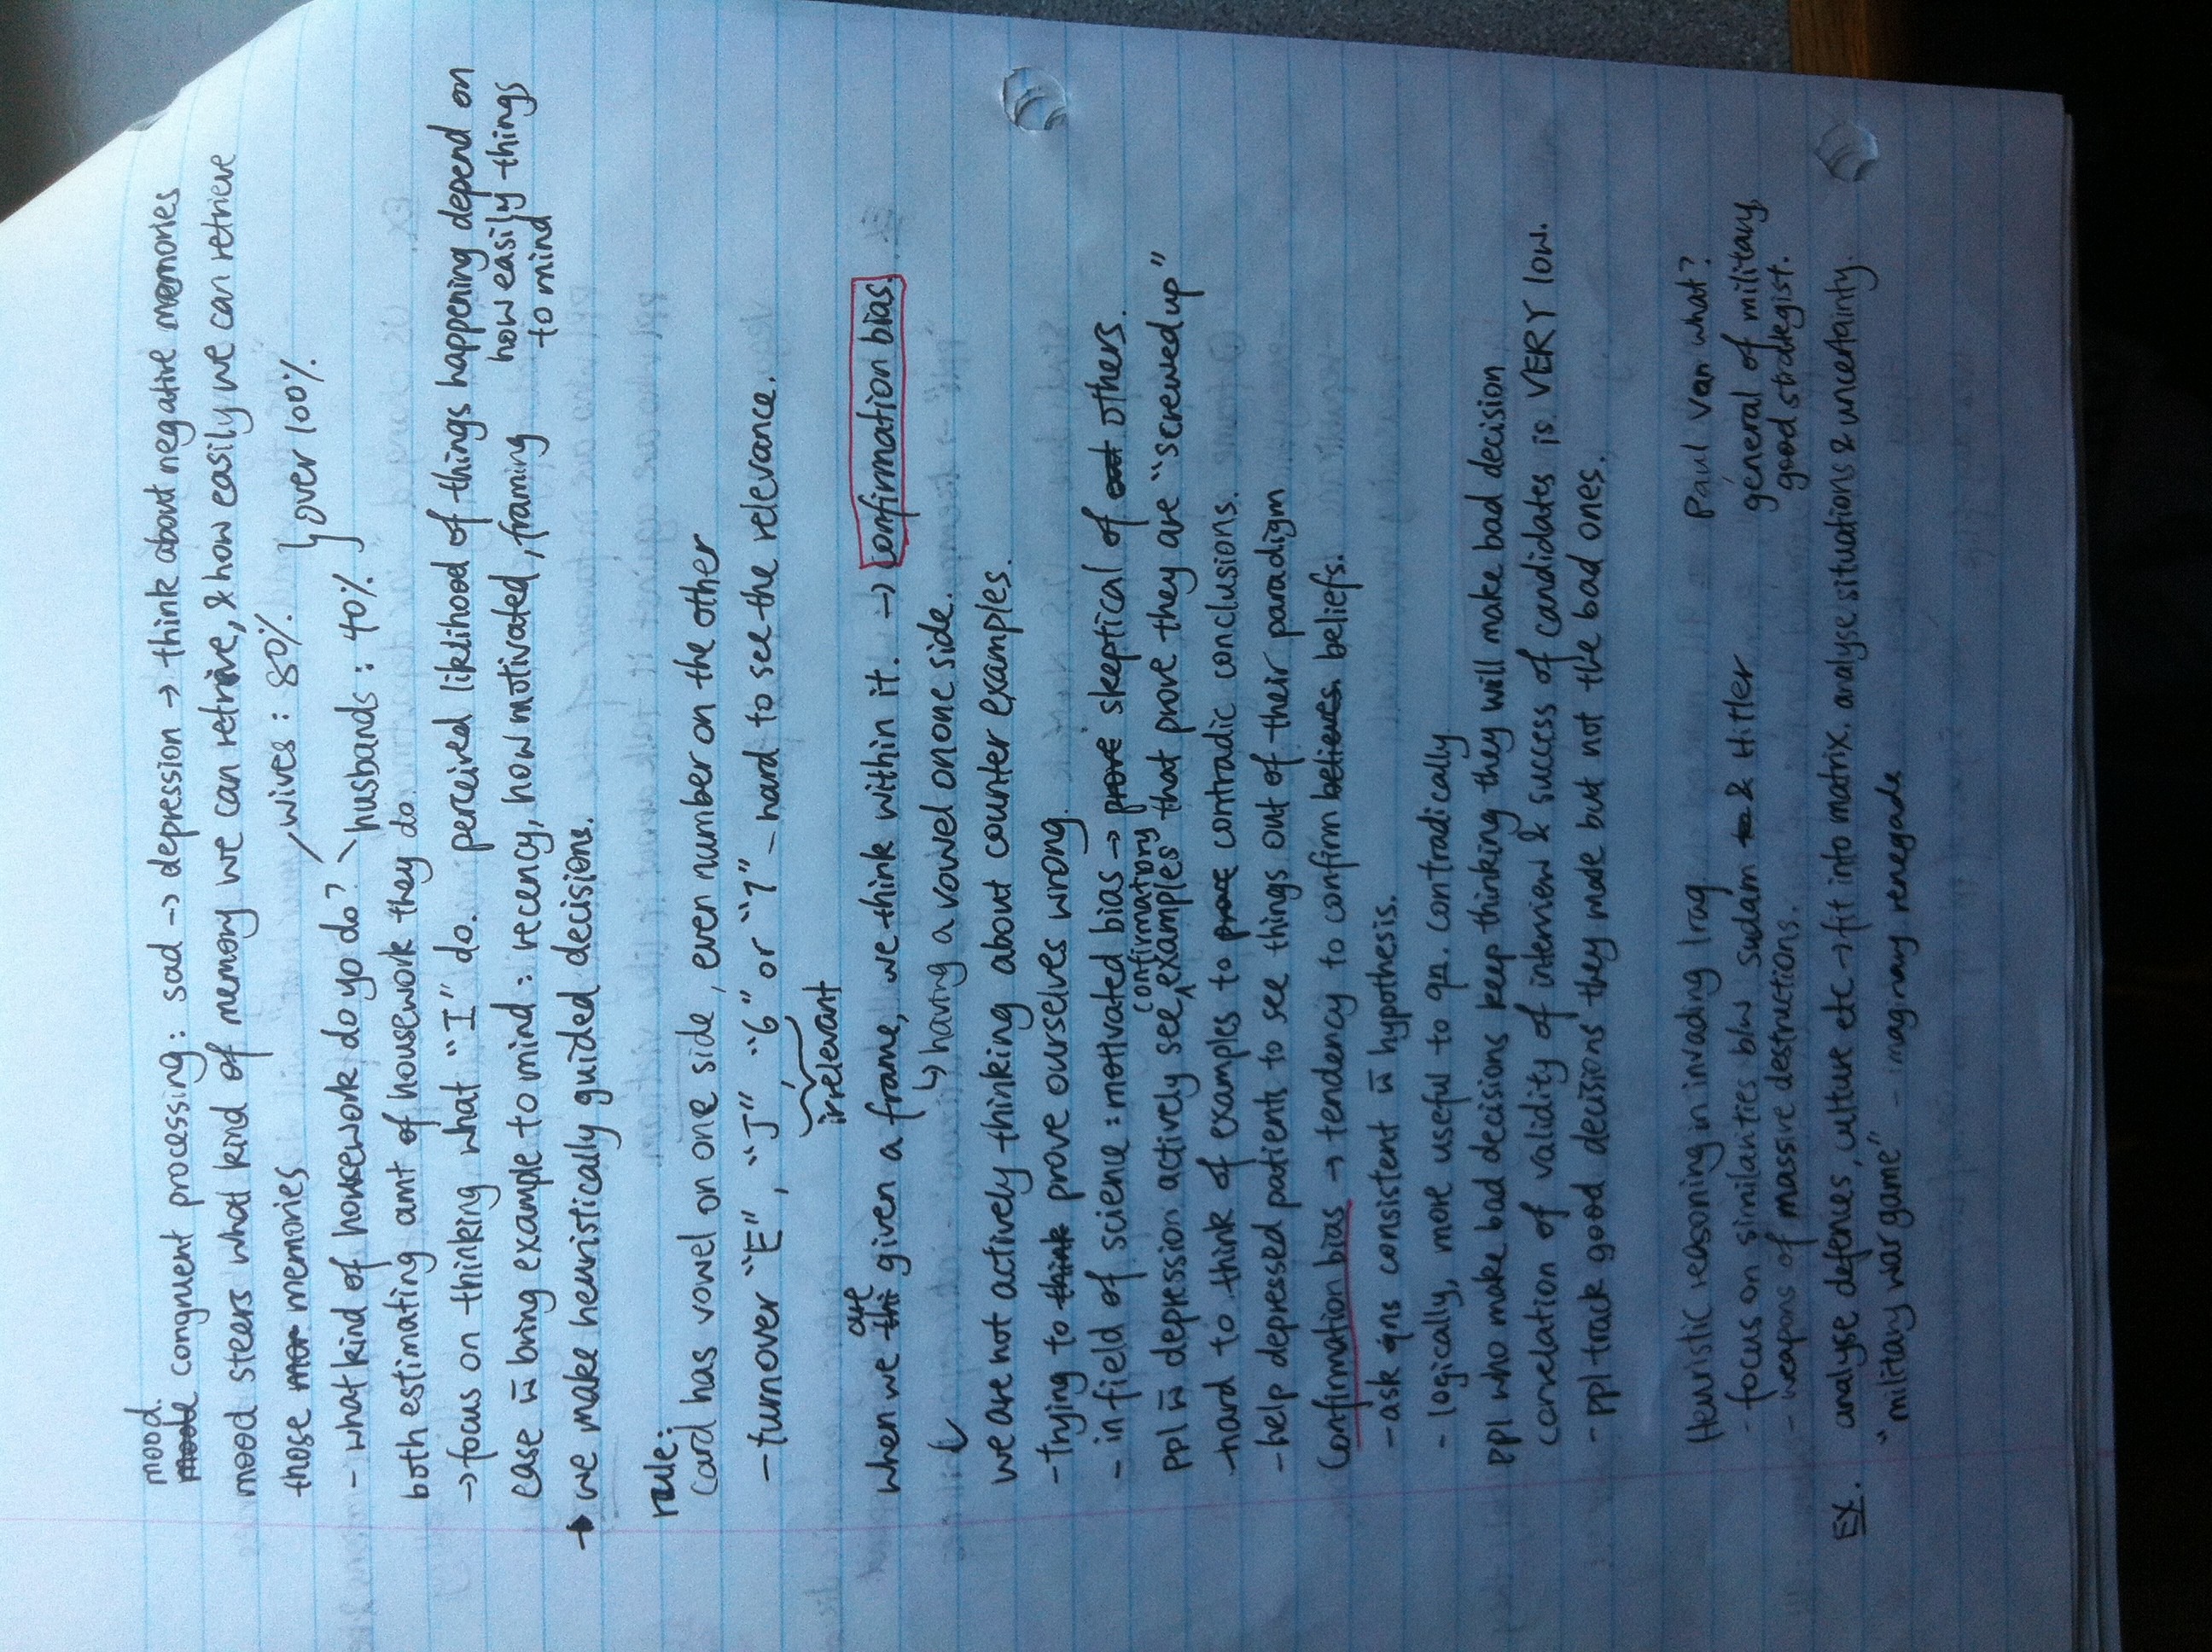 mood
mode congruent processing: sad → depression → think about negative memories
mood steers what kind of memory we can retrive, & how easily we can retrieve
those mor memories
- what kind of housework do yo do? wives: 80% } over 100%
husbands: 40%
both estimating amt of housework they do.
→ focus on thinking what "I" do. perceived likelihood of things happening depend on
how easily things
to mind
ease w̄ bring example to mind: recency, how motivated, framing
→ we make heuristically guided decisions.
rule:
Card has vowel on one side, even number on the other
- turnover "E", "J" "6" or "7" - hard to see the relevance.
irrelevant
are
when we thi given a frame, we think within it. → confirmation bias.
↳ having a vowel on one side.
↓
we are not actively thinking about counter examples.
- trying to think prove ourselves wrong
- in field of science: motivated bias → prove skeptical of others.
confirmatory
ppl w̄ depression actively see ^ examples that prove they are "screwed up"
- hard to think of examples to prove contradic conclusions.
- help depressed patients to see things out of their paradigm
Confirmation bias → tendency to confirm believes. beliefs.
- ask qns consistent w̄ hypothesis.
- logically, more useful to qn. contradically
ppl who make bad decisions keep thinking they will make bad decision
correlation of validity of interview & success of candidates is VERY low.
- ppl track good decisions they made but not the bad ones.
Heuristic reasoning in invading Iraq
Paul Van what?
- focus on similarities b/w sudam & Hitler
general of military
good strategist.
- weapons of massive destructions.
EX. analyse defenes, culture etc → fit into matrix. analyse situations & uncertainty.
"military war game" - imaginary renegade